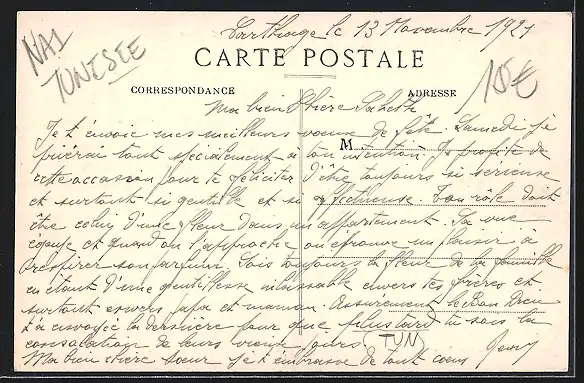 Carthage le 13 Novembre 1921
NA1
TUNISIE
CARTE POSTALE
10€
CORRESPONDANCE
ADRESSE
Ma bien Chère
Je t'envoie mes meilleurs vœux de fête. Samedi je
M.
prierai tout spécialement à ton intention. Je profite de
cette occasion pour te féliciter d'être toujours si sérieuse
et surtout si gentille et si affectueuse. Ton rôle doit
être celui d'une fleur dans un appartement. Sa vue
égaye et quand on l'approche on éprouve un plaisir à
respirer son parfum. Sois toujours la fleur de la famille
en étant d'une gentillesse inlassable envers tes frères et
surtout envers papa et maman. Assurément le Bon Dieu
t'a envoyée la dernière pour que plus tard tu sois la
consolation de leurs vieux jours.
(TUN)
Ma bien chère sœur je t'embrasse de tout cœur